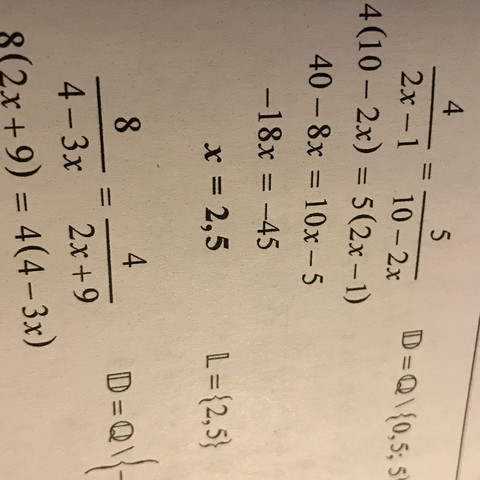 4/(2x − 1) = 5/(10 − 2x) 𝔻 = ℚ \ {0,5; 5
4(10 − 2x) = 5(2x − 1)
40 − 8x = 10x − 5
−18x = −45
x = 2,5 𝕃 = {2,5}
8/(4 − 3x) = 4/(2x + 9) 𝔻 = ℚ \ {−
8(2x + 9) = 4(4 − 3x)